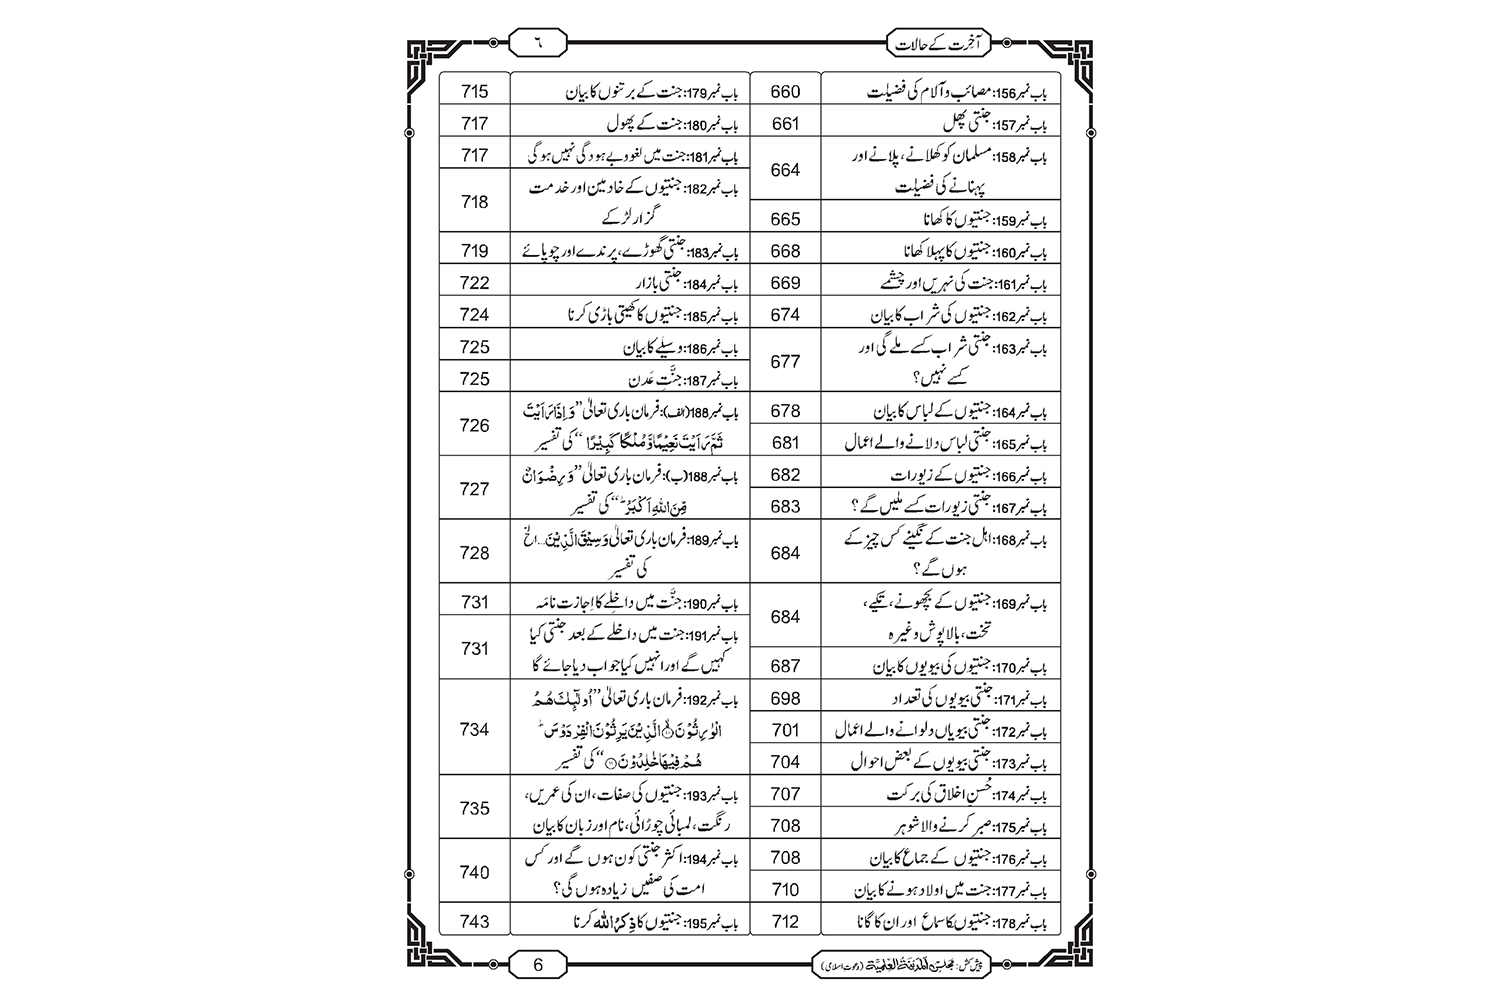 آخِرت کے حالات
٦
باب نمبر156: مصائب و آلام کی فضیلت 660
باب نمبر157: جنتی پھل 661
باب نمبر158: مسلمان کو کھلانے، پلانے اور
پہنانے کی فضیلت 664
باب نمبر159: جنتیوں کا کھانا 665
باب نمبر160: جنتیوں کا پہلا کھانا 668
باب نمبر161: جنت کی نہریں اور چشمے 669
باب نمبر162: جنتیوں کی شراب کا بیان 674
باب نمبر163: جنتی شراب کسے ملے گی اور
کسے نہیں؟ 677
باب نمبر164: جنتیوں کے لباس کا بیان 678
باب نمبر165: جنتی لباس دلانے والے اعمال 681
باب نمبر166: جنتیوں کے زیورات 682
باب نمبر167: جنتی زیورات کسے ملیں گے؟ 683
باب نمبر168: اہل جنت کے نگینے کس چیز کے
ہوں گے؟ 684
باب نمبر169: جنتیوں کے بچھونے، تکیے،
تخت، بالا پوش وغیرہ 684
باب نمبر170: جنتیوں کی بیویوں کا بیان 687
باب نمبر171: جنتی بیویوں کی تعداد 698
باب نمبر172: جنتی بیویاں دلوانے والے اعمال 701
باب نمبر173: جنتی بیویوں کے بعض احوال 704
باب نمبر174: حُسنِ اخلاق کی برکت 707
باب نمبر175: صبر کرنے والا شوہر 708
باب نمبر176: جنتیوں کے جماع کا بیان 708
باب نمبر177: جنت میں اولاد ہونے کا بیان 710
باب نمبر178: جنتیوں کا سماع اور ان کا گانا 712
باب نمبر179: جنت کے برتنوں کا بیان 715
باب نمبر180: جنت کے پھول 717
باب نمبر181: جنت میں لغو و بے ہودگی نہیں ہوگی 717
باب نمبر182: جنتیوں کے خادمین اور خدمت
گزار لڑکے 718
باب نمبر183: جنتی گھوڑے، پرندے اور چوپائے 719
باب نمبر184: جنتی بازار 722
باب نمبر185: جنتیوں کا کھیتی باڑی کرنا 724
باب نمبر186: وسیلے کا بیان 725
باب نمبر187: جنَّتِ عَدن 725
باب نمبر188(الف): فرمان باری تعالیٰ ”وَ اِذَا رَاَیْتَ
ثَمَّ رَاَیْتَ نَعِیْمًا وَّ مُلْكًا كَبِیْرًا“ کی تفسیر 726
باب نمبر188(ب): فرمان باری تعالیٰ ”وَ رِضْوَانٌ
مِّنَ اللّٰهِ اَكْبَرُؕ“ کی تفسیر 727
باب نمبر189: فرمان باری تعالیٰ وَ سِیْقَ الَّذِیْنَ...الخ
کی تفسیر 728
باب نمبر190: جنَّت میں داخلے کا اِجازت نامہ 731
باب نمبر191: جنت میں داخلے کے بعد جنتی کیا
کہیں گے اور انہیں کیا جواب دیا جائے گا 731
باب نمبر192: فرمان باری تعالیٰ ”اُولٰٓىٕكَ هُمُ
الْوٰرِثُوْنَۙ(۱۰) الَّذِیْنَ یَرِثُوْنَ الْفِرْدَوْسَؕ
هُمْ فِیْهَا خٰلِدُوْنَ(۱۱)“ کی تفسیر 734
باب نمبر193: جنتیوں کی صفات، ان کی عمریں،
رنگت، لمبائی چوڑائی، نام اور زبان کا بیان 735
باب نمبر194: اکثر جنتی کون ہوں گے اور کس
امت کی صفیں زیادہ ہوں گی؟ 740
باب نمبر195: جنتیوں کا ذِکْرُ اللّٰه کرنا 743
پیش کش: مجلس المدینة العلمیة (دعوت اسلامی)
6